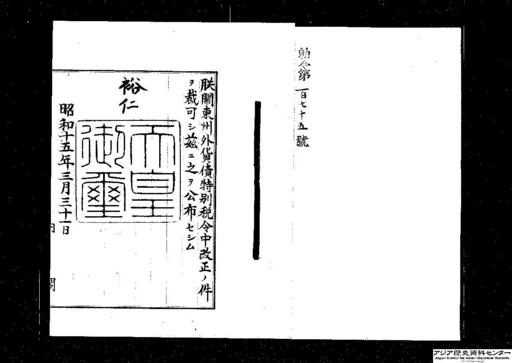 勅令第一百七十五號
朕關東州外貨債特別税令中改正ノ件
ヲ裁可シ茲ニ之ヲ公布セシム
裕仁
天皇御璽
昭和十五年三月三十一日
内閣
アジア歴史資料センター
Japan Center for Asian Historical Records